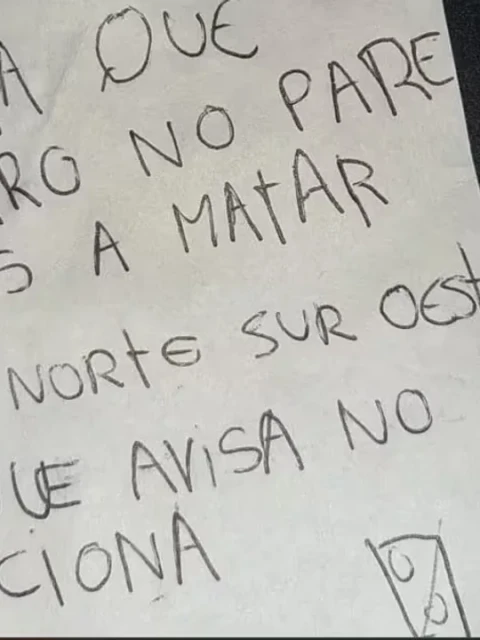 A QUE
RO NO PARE
S A MATAR
NORTE SUR OEST
UE AVISA NO
CIONA